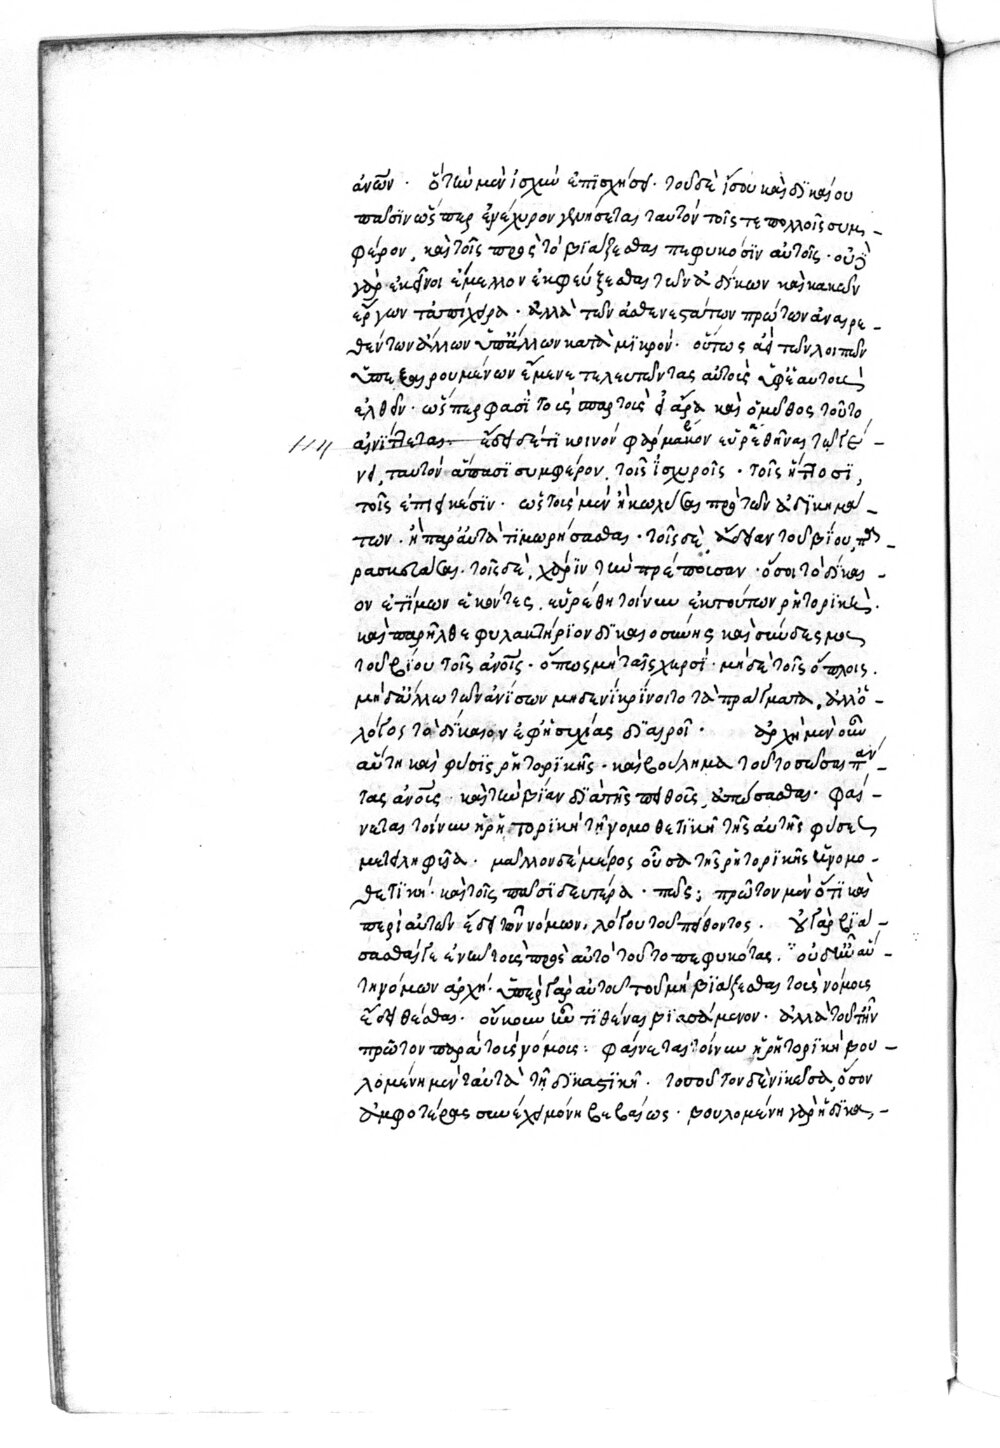 ἀνῶν · ὃ τὴν μὲν ἰσχὺν ἐπισχήσει · τοῦ δὲ ἴσου καὶ δικαίου
πᾶσιν ὥσπερ ἐνέχυρον γενήσεται ταυτὸν τοῖς τε πολλοῖς συμ-
φέρον, καὶ τοῖς πρὸς τὸ βιάζεσθαι πεφυκόσιν αὐτοῖς · οὐδὲ
γὰρ ἐκεῖνοι ἔμελλον ἐκφεύξεσθαι τῶν ἀδίκων καὶ κακῶν
ἔργων τἀπίχειρα · ἀλλὰ τῶν ἀσθενεστάτων πρώτων ἀναιρε-
θέντων ἄλλων ὑπ' ἄλλων κατὰ μικρὸν · οὕτως ἀεὶ τῶν λοιπῶν
ὑπεξαιρουμένων ἔμενε τελευτῶντας αὐτοὺς ὑφ' ἑαυτοὺς
ἐλθεῖν · ὥσπερ φασὶ τοὺς σπαρτοὺς εἰ ἄρα καὶ ὁ μῦθος τοῦτο
αἰνίττεται. ἔδει δέ τι κοινὸν φάρμακον εὑρεθῆναι τῷ γέ-
νει, ταυτὸν ἅπασι συμφέρον, τοῖς ἰσχυροῖς · τοῖς ἥττοσι,
τοῖς ἐπιεικέσιν · ὡς τοὺς μὲν ἢ κωλῦσαι πρὸ τῶν ἀδικημά-
των · ἢ παρ' αὐτὰ τιμωρήσασθαι · τοῖς δὲ, ἄδειαν τοῦ βίου πα-
ρασκευάσαι · τοῖς δὲ, χάριν τὴν πρέπουσαν · ὅσοι τὸ δίκαι-
ον ἐτίμων ἑκόντες, εὑρέθη τοίνυν ἐκ τούτων ῥητορικὴ ·
καὶ παρῆλθε φυλακτήριον δικαιοσύνης καὶ σύνδεσμος
τοῦ βίου τοῖς ἀνοῖς · ὅπως μὴ ταῖς χερσὶ · μηδὲ τοῖς ὅπλοις ·
μηδ' ἄλλω τῶν ἀνίσων μηδενὶ κρίνοιτο τὰ πράγματα, ἀλλ' ὁ
λόγος τὸ δίκαιον ἐφ' ἡσυχίας διαιροῖ · ἀρχὴ μὲν οὖν
αὕτη καὶ φύσις ῥητορικῆς · καὶ βούλημα τοῦτο σῶσαι πάν-
τας ἀνοῖς · καὶ τὴν βίαν διὰ τῆς πειθοῦς, ἀπώσασθαι · φαί-
νεται τοίνυν ἡ ῥητορικὴ τῇ νομοθετικῇ τῆς αὐτῆς φύσεως
μετειληφυῖα · μᾶλλον δὲ μέρος οὖσα τῆς ῥητορικῆς ἡ νομο-
θετικὴ · καὶ τοῖς πᾶσι δευτέρα · πῶς; πρῶτον μὲν ὅτι καὶ
περὶ αὐτῶν ἔδει τῶν νόμων, λόγου τοῦ πείθοντος · οὐ γὰρ βιά-
σασθαί γε ἐνῆν τοὺς πρὸς αὐτὸ τοῦτο πεφυκότας · οὐδ' ἦν αὕ-
τη νόμων ἀρχὴ · ὑπὲρ γὰρ αὐτοῦ τοῦ μὴ βιάζεσθαι τοὺς νόμους
ἔδει θέσθαι · οὔκουν ἦν τιθέναι βιασάμενον · ἀλλὰ τοῦτ' ἦν
πρῶτον παρὰ τοὺς νόμους · φαίνεται τοίνυν ἡ ῥητορικὴ βου-
λομένη μὲν ταὐτὰ τῇ δικαστικῇ · τοσοῦτον δὲ νικῶσα, ὅσον
ἀμφοτέρας συνέχει μόνη βεβαίως · βουλομένη γὰρ ἡ δικα-